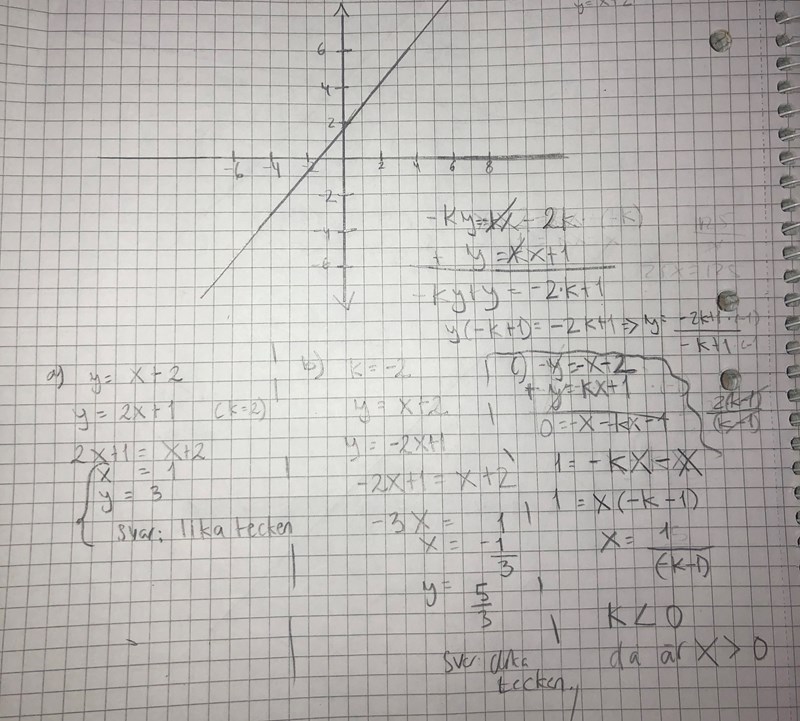 y=x+2
6
4
2
-6 -4 -2 2 4 6 8
-2
-4
-6
-ky=kx-2k
+ y=kx+1
-ky+y = -2·k+1
y(-k+1)= -2k+1 => y= -2k+1 (-1) / -k+1
2(k-1) / (k-1)
a) y= x+2
y = 2x+1 (k=2)
2x+1= x+2
x = 1
y = 3
svar: lika tecken
b) k = -2
y = x+2
y = -2x+1
-2x+1 = x+2
-3x = 1
x = -1/3
y = 5/3
svar: olika
tecken
c) -y=-x-2
+ y=kx+1
1= -kx-x
1 = x(-k-1)
x = 1 / (-k-1)
k<0
då är x>0